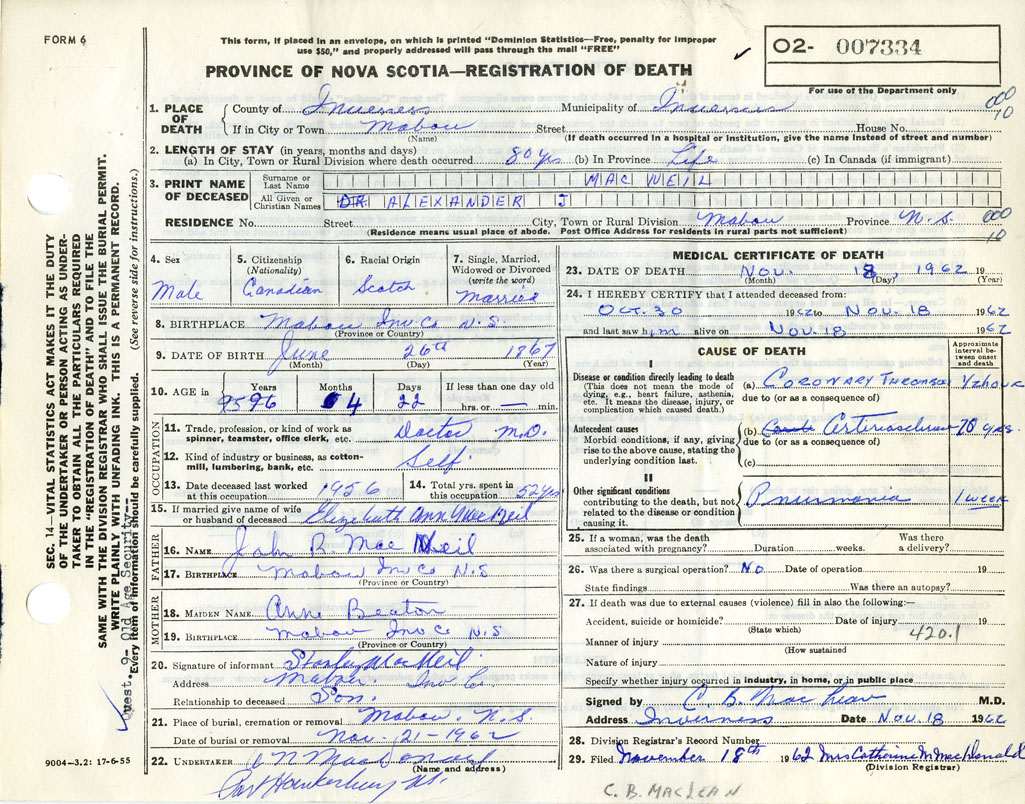 FORM 6
This form, if placed in an envelope, on which is printed "Dominion Statistics—Free, penalty for improper
use $50," and properly addressed will pass through the mail "FREE"
✓
02- 007334
For use of the Department only
PROVINCE OF NOVA SCOTIA—REGISTRATION OF DEATH
1. PLACE OF DEATH County of Inverness Municipality of Inverness 000
If in City or Town Mabou Street House No. 10
(Name) (If death occurred in a hospital or institution, give the name instead of street and number)
2. LENGTH OF STAY (in years, months and days)
(a) In City, Town or Rural Division where death occurred 80 yrs (b) In Province Life (c) In Canada (if immigrant)
3. PRINT NAME OF DECEASED Surname or Last Name MAC NEIL
All Given or Christian Names DR ALEXANDER J
RESIDENCE No. Street City, Town or Rural Division Mabou Province N.S. 000
(Residence means usual place of abode. Post Office Address for residents in rural parts not sufficient) 10
4. Sex Male
5. Citizenship (Nationality) Canadian
6. Racial Origin Scotch
7. Single, Married, Widowed or Divorced (write the word) Married
8. BIRTHPLACE Mabou Inv. Co N.S.
(Province or Country)
9. DATE OF BIRTH June 26th 1867
(Month) (Day) (Year)
10. AGE in Years 96 Months 4 Days 22 If less than one day old
hrs. or — min.
OCCUPATION
11. Trade, profession, or kind of work as spinner, teamster, office clerk, etc. Doctor M.D.
12. Kind of industry or business, as cotton-mill, lumbering, bank, etc. Self
13. Date deceased last worked at this occupation 1956
14. Total yrs. spent in this occupation 52 yrs
15. If married give name of wife or husband of deceased Elizabeth Ann MacNeil
FATHER
16. NAME John B. Mac Neil
17. BIRTHPLACE Mabou Inv Co N.S
(Province or Country)
MOTHER
18. MAIDEN NAME Anne Beaton
19. BIRTHPLACE Mabou Inv Co N.S
(Province or Country)
20. Signature of informant Stanley MacNeil
Address Mabou Inv Co.
Relationship to deceased Son.
21. Place of burial, cremation or removal Mabou. N.S
Date of burial or removal Nov. 21-1962
22. UNDERTAKER
(Name and address)
Port Hawkesbury N.S.
9004—3.2: 17-6-55
MEDICAL CERTIFICATE OF DEATH
23. DATE OF DEATH Nov. 18, 1962 19
(Month) (Day) (Year)
24. I HEREBY CERTIFY that I attended deceased from:
Oct. 30 1962 to Nov. 18 1962
and last saw him alive on Nov. 18 1962
CAUSE OF DEATH
Approximate interval between onset and death
I
Disease or condition directly leading to death
(This does not mean the mode of dying, e.g., heart failure, asthenia, etc. It means the disease, injury, or complication which caused death.)
(a) CORONARY THROMBOSIS ½ hour
due to (or as a consequence of)
Antecedent causes
Morbid conditions, if any, giving rise to the above cause, stating the underlying condition last.
(b) Arteriosclerosis 20 yrs.
due to (or as a consequence of)
(c)
II
Other significant conditions
contributing to the death, but not related to the disease or condition causing it.
Pneumonia 1 week
25. If a woman, was the death associated with pregnancy? Duration weeks. Was there a delivery?
26. Was there a surgical operation? No Date of operation 19
State findings Was there an autopsy?
27. If death was due to external causes (violence) fill in also the following:—
Accident, suicide or homicide? Date of injury 19
(State which) 420.1
Manner of injury
(How sustained
Nature of injury
Specify whether injury occurred in industry, in home, or in public place
Signed by C. B. MacLean M.D.
Address Inverness Date Nov. 18 1962
28. Division Registrar's Record Number
29. Filed November 18th 1962 Mrs Catherine M. MacDonald
(Division Registrar)
C. B. MACLEAN
SEC. 14—VITAL STATISTICS ACT MAKES IT THE DUTY
OF THE UNDERTAKER OR PERSON ACTING AS UNDER-
TAKER TO OBTAIN ALL THE PARTICULARS REQUIRED
IN THE "REGISTRATION OF DEATH" AND TO FILE THE
SAME WITH THE DIVISION REGISTRAR WHO SHALL ISSUE THE BURIAL PERMIT.
WRITE PLAINLY WITH UNFADING INK. THIS IS A PERMANENT RECORD.
Every item of information should be carefully supplied. (See reverse side for instructions.)
Quest. 9- Old Age Security--